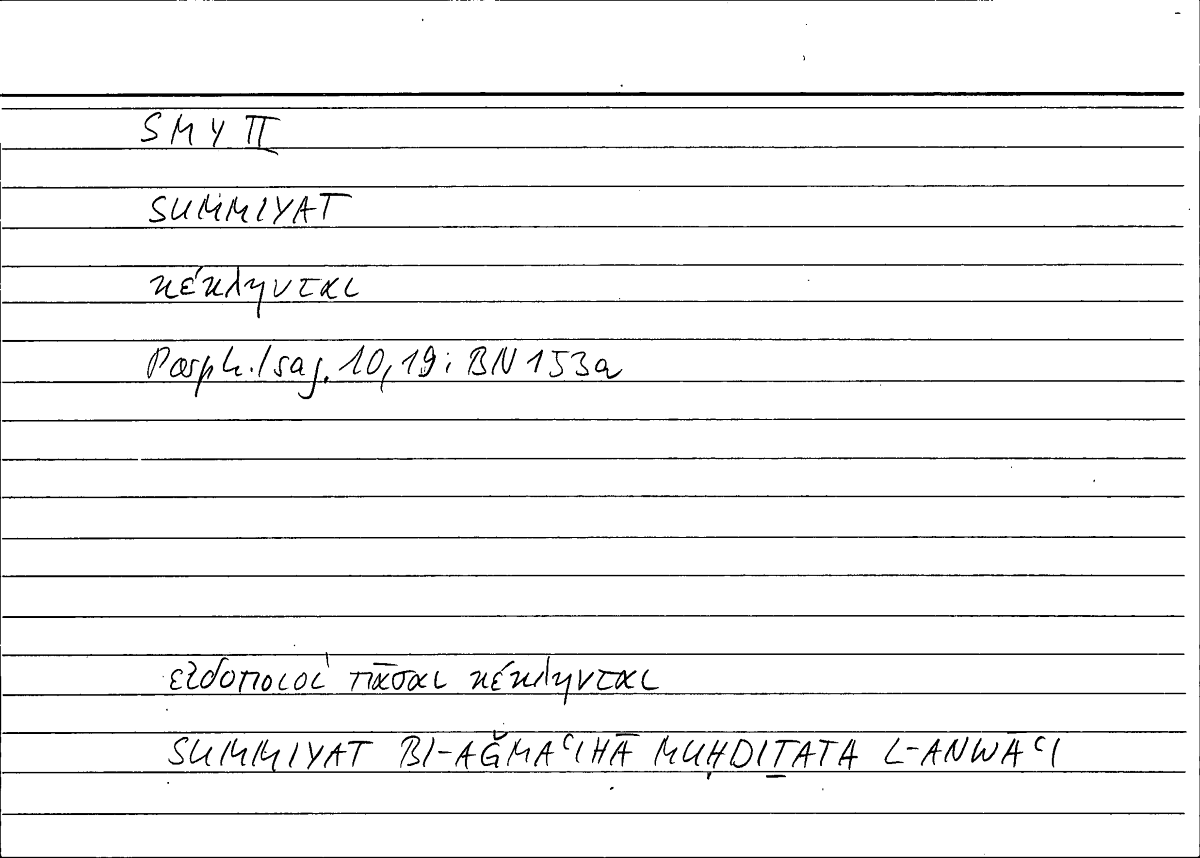 SMY II
SUMMIYAT
κέκληνται
Porph. Isag. 10,19; BN 153a
εἰδοποιοὶ πᾶσαι κέκληνται
SUMMIYAT BI-AǦMAʿIHĀ MUḤDIṮATA L-ANWĀʿI